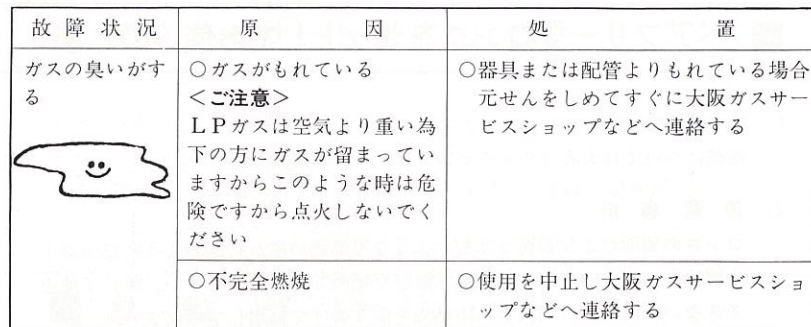 故障状況 原因 処置
ガスの臭いがす
る
○ガスがもれている
<ご注意>
LPガスは空気より重い為
下の方にガスが留まってい
ますからこのような時は危
険ですから点火しないでく
ださい
○器具または配管よりもれている場合
元せんをしめてすぐに大阪ガスサー
ビスショップなどへ連絡する
○不完全燃焼
○使用を中止し大阪ガスサービスショ
ップなどへ連絡する